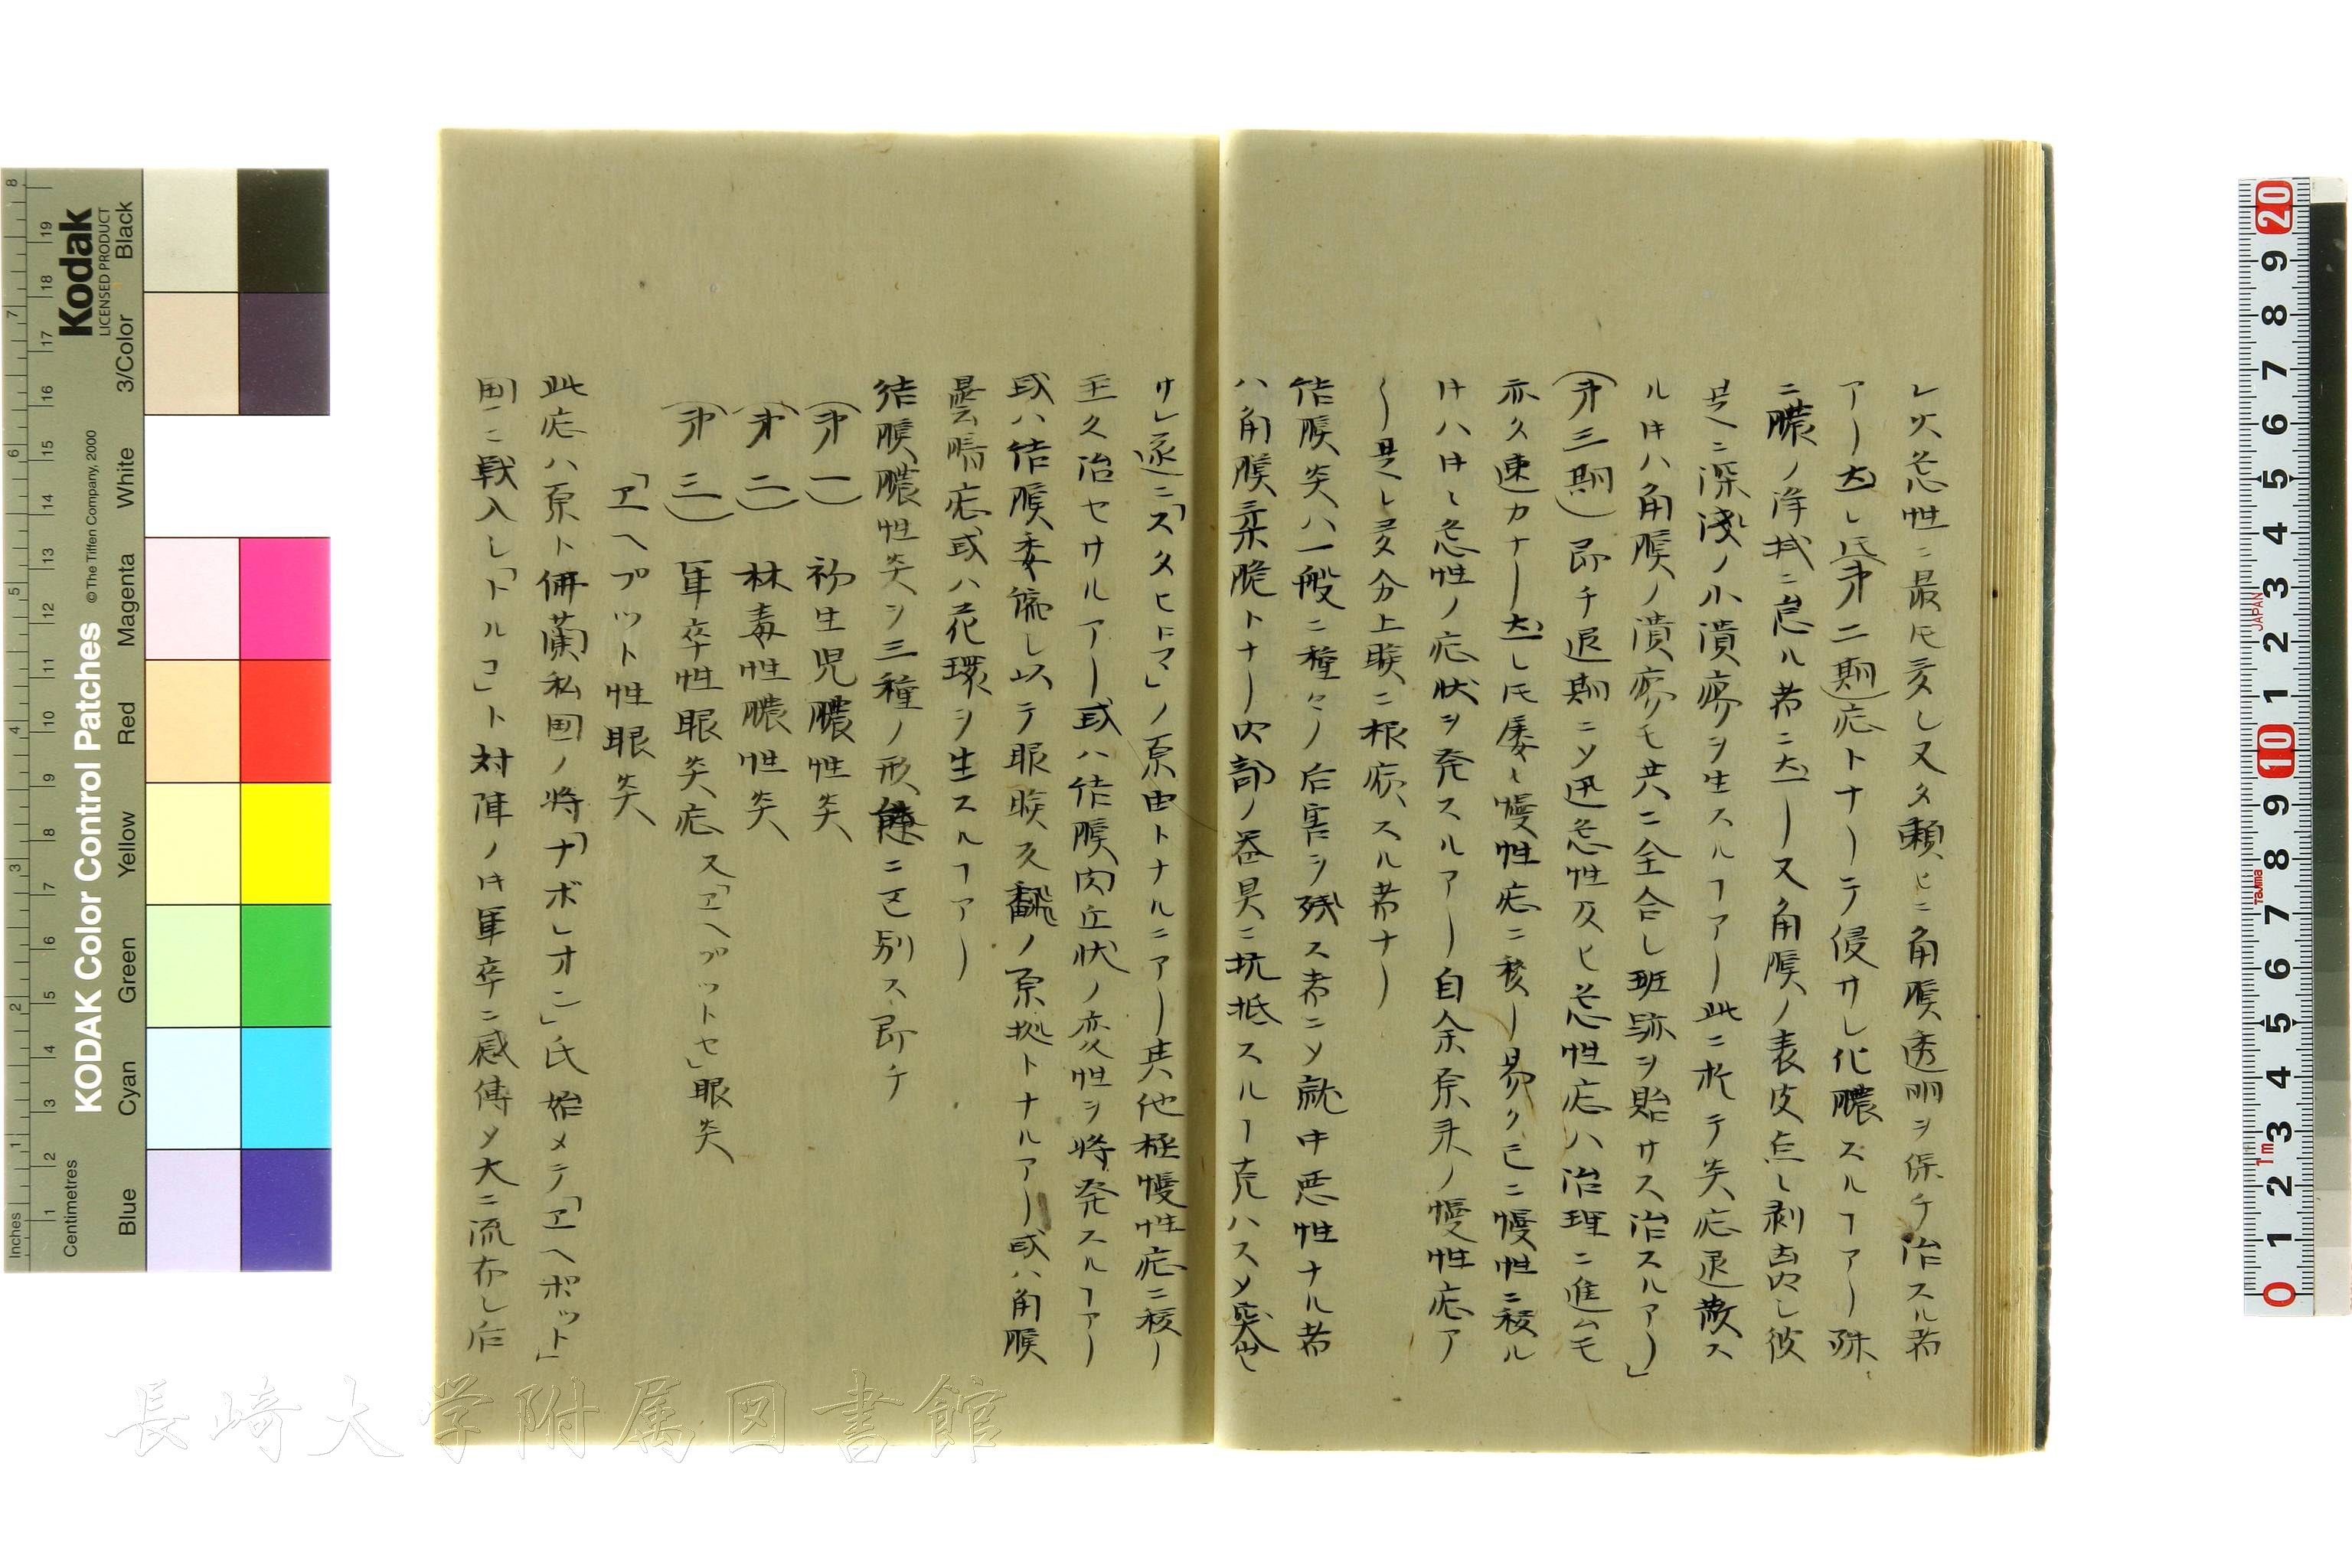 レ火急性ニ最モ多シ又タ頼ヒニ角膜透明ヲ保チ治スル者
アリ然レ𪜈第二期症トナリテ侵サレ化膿スルヿアリ殊
ニ膿ノ浄拭ニ怠ル者ニ然リ又角膜ノ表皮点々剥脱シ彼
是ニ深浅ノ小潰瘍ヲ生スルヿアリ此ニ於テ炎症退散ス
ル𪜈ハ角膜ノ潰瘍モ共ニ全合シ斑跡ヲ貽サス治スルアリ」
(第三期)即チ退期ニ〆迅急性及ヒ急性症ハ治理ニ進ムモ
亦タ速カナリ然レ𪜈屡々慢性症ニ移リ易ク已ニ慢性ニ移ル
𪜈ハ時々急性ノ症状ヲ発スルアリ自余原来ノ慢性症ア
リ是レ多分上瞼ニ根療スル者ナリ
結膜炎ハ一般ニ種々ノ后害ヲ残ス者ニ〆就中悪性ナル者
ハ角膜柔脆トナリ内部ノ器具ニ抗抵スルヿ克ハス〆突出
サレ逐ニ「スタヒロマ」ノ原由トナルニアリ其他極慢性症ニ移リ
全ク治セサルアリ或ハ結膜肉丘状ノ変性ヲ将発スルヿアリ
或ハ結膜委縮シ以テ眼瞼反翻ノ原拠トナルアリ或ハ角膜
曇暗症或ハ花環ヲ生スルヿアリ
結膜膿性炎ヲ三種ノ形態ニ区別ス即チ
(第一) 初生児膿性炎
(第二) 林毒性膿性炎
(第三) 軍卒性眼炎症 又「ヱヘプットセ」眼炎
「ヱヘプット性眼炎
此症ハ原ト佛蘭私国ノ将「ナボレオン」氏始メテ「ヱヘポット」
国ニ戦入シ「トルコ」ト対陣ノ𪜈軍卒ニ感傳〆大ニ流布シ后
長崎大学附属図書館
Kodak
LICENSED PRODUCT
KODAK Color Control Patches
© The Tiffen Company, 2000
Black
3/Color
White
Magenta
Red
Yellow
Green
Cyan
Blue
Centimetres
Inches
JAPAN
Tajima